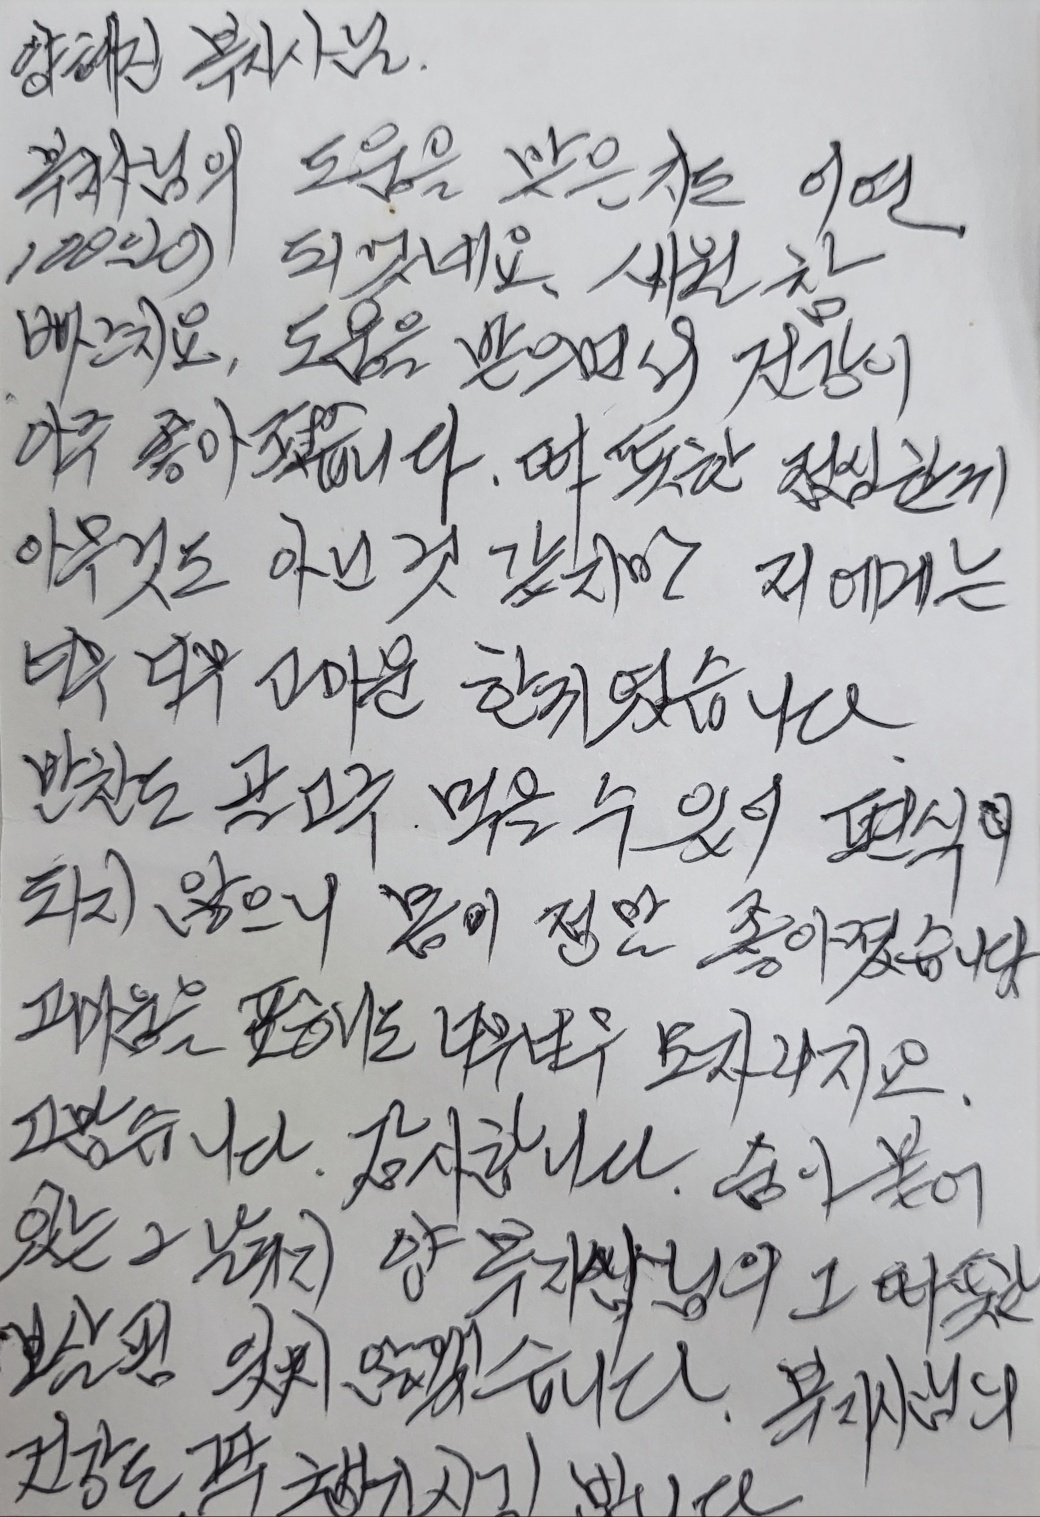 양혜진 복지사님.
복지사님의 도움을 맞은지도 이연
100일이 되었네요. 세월 참
빠르지요. 도움을 받으면서 건강이
아주 좋아졌습니다. 따뜻한 점심 한끼
아무것도 아닌 것 같지만 저에게는
너무 너무 고마운 한끼였습니다.
반찬도 골고루 먹을 수 있어 편식이
되지 않으니 몸이 정말 좋아졌습니다
고마움을 표현해도 너무너무 모자라지요.
고맙습니다. 감사합니다. 숨이 붙어
있는 그 날까지 양 복지사님의 그 따뜻한
보살핌 잊지 않겠습니다. 복지사님의
건강도 꼭 챙기시길 빕니다